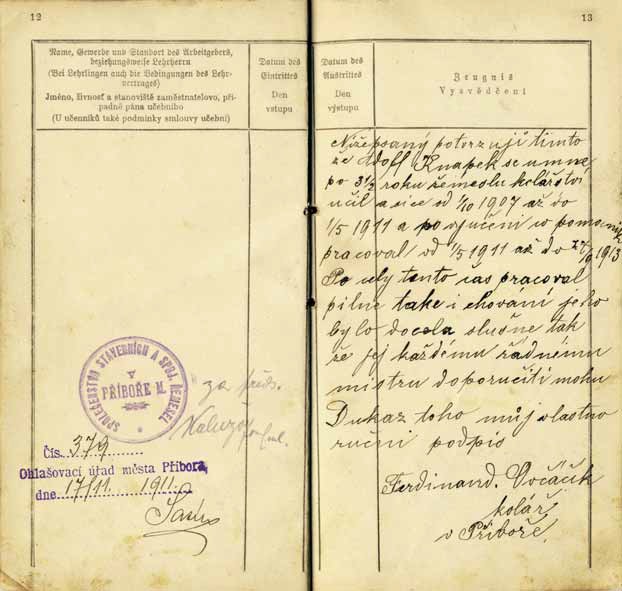 12
Name, Gewerbe und Standort des Arbeitgebers,
beziehungsweise Lehrherrn
(Bei Lehrlingen auch die Bedingungen des Lehr-
vertrages)
Jméno, živnosť a stanoviště zaměstnatelovo, pří-
padně pána učebního
(U učenníků také podmínky smlouvy učební)
Datum des
Eintrittes
Den
vstupu
SPOLEČENSTVO STAVEBNÍCH A SPOJ. ŘEMESEL
V
PŘÍBOŘE M.
za předs.
Čís. 379
Ohlašovací úřad města Příbora,
dne 17/11 1911.
13
Datum des
Austrittes
Den
výstupu
Zeugnis
Vysvědčení
Nížepsaný potvrzuji tímto
že Adolf Knapek se u mne
po 3½ roku řemeslu kolářství
učil a sice od 1/10 1907 až do
1/5 1911 a po vyučení co pomocník
pracoval od 1/5 1911 až do 1913
Po celý tento čas pracoval
pilně take i chování jeho
bylo docela slušne tak
že jej každému řádnému
mistru doporučiti mohu
Dukaz toho můj vlastno
ruční podpis
Ferdinand
kolář
v Příboře.